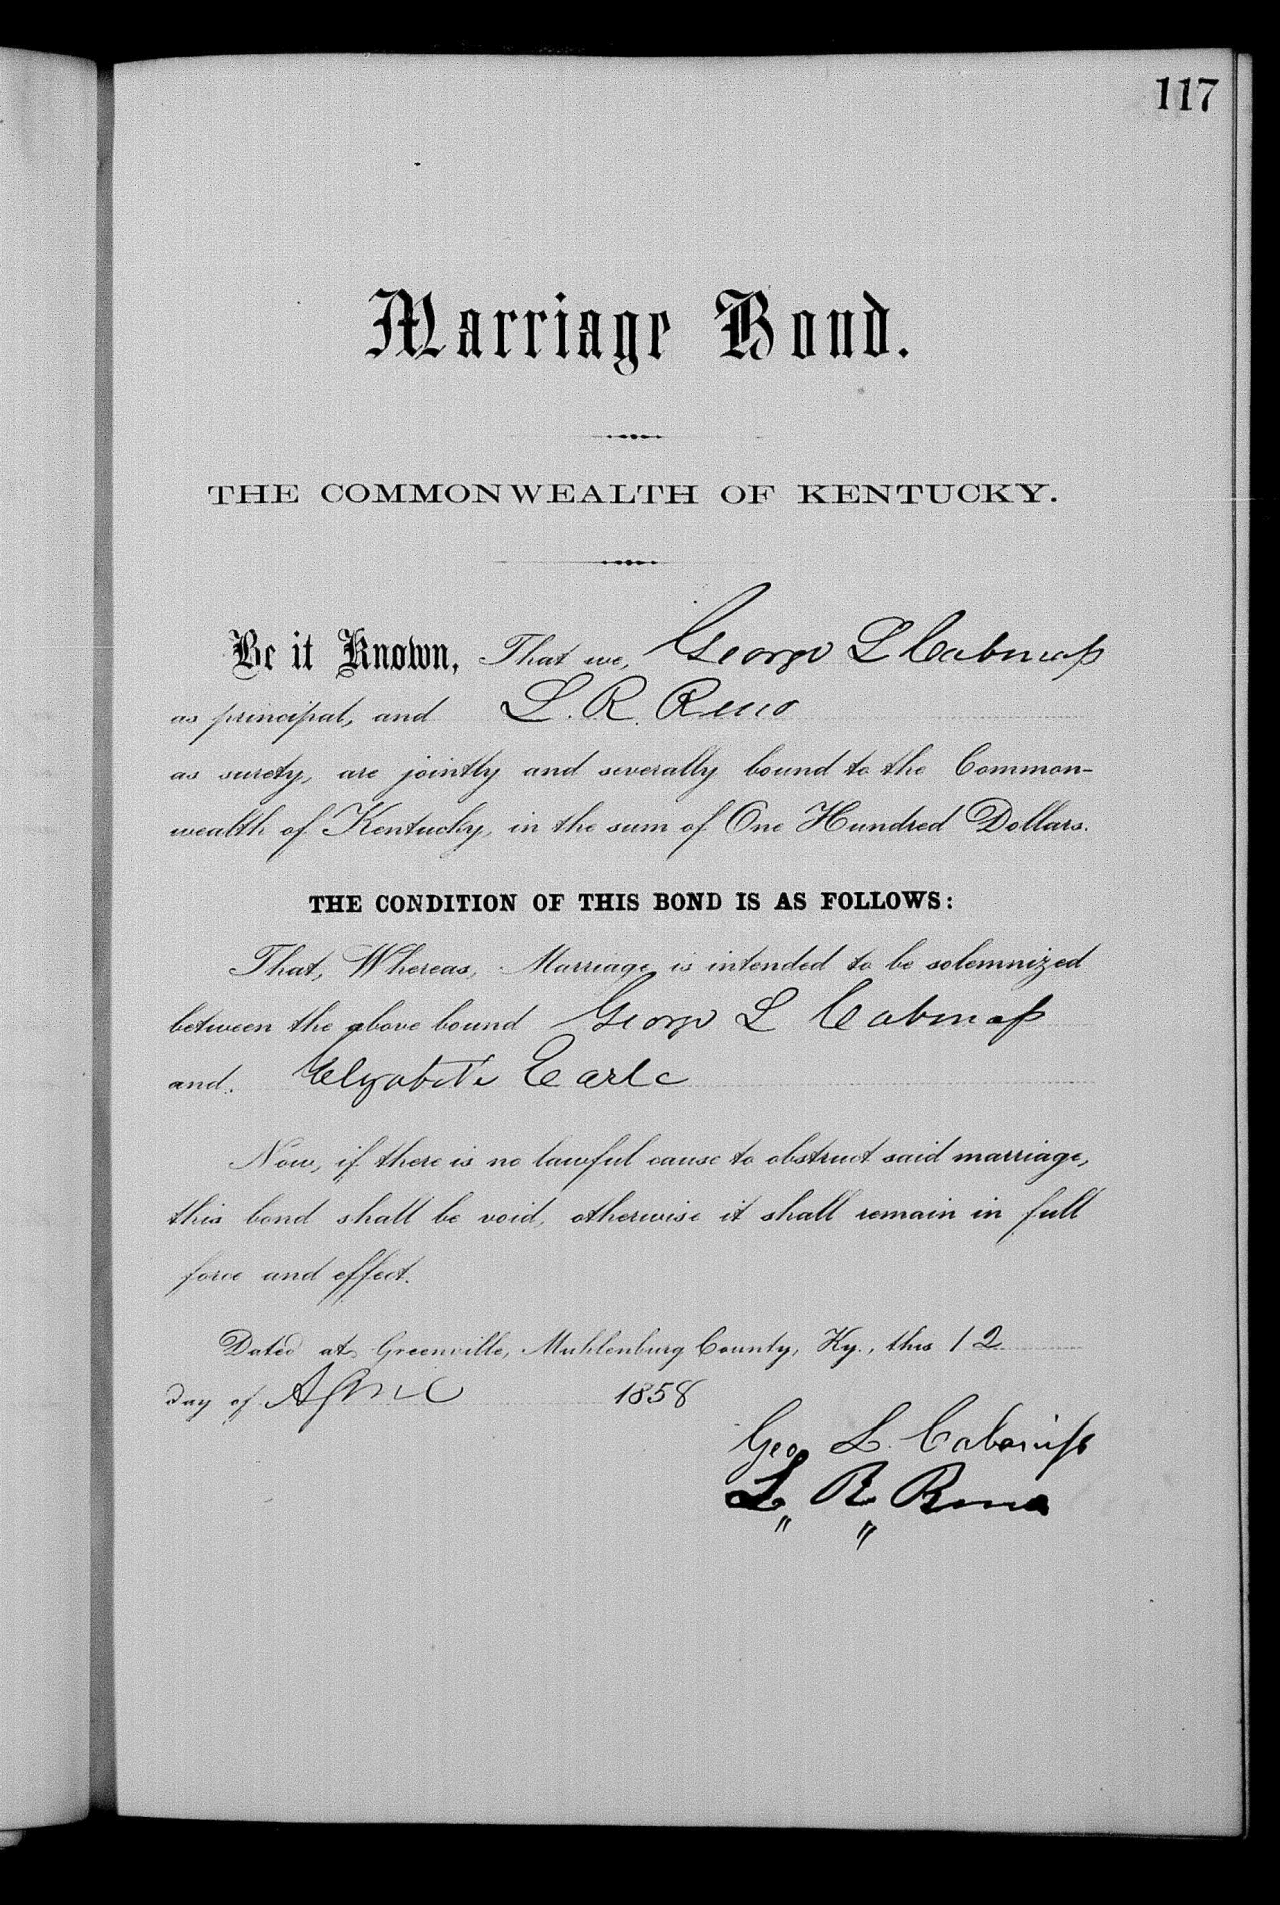 117
Marriage Bond.
THE COMMONWEALTH OF KENTUCKY.
Be it Known, That we, George L Cabinass
as principal, and L. R. Reno
as surety, are jointly and severally bound to the Common-
wealth of Kentucky, in the sum of One Hundred Dollars.
THE CONDITION OF THIS BOND IS AS FOLLOWS:
That, Whereas, Marriage is intended to be solemnized
between the above bound George L Cabinass
and Elizabeth Earle
Now, if there is no lawful cause to obstruct said marriage,
this bond shall be void, otherwise it shall remain in full
force and effect.
Dated at Greenville, Muhlenburg County, Ky., this 12
day of April 1858
Geo L. Cabaniss
L. R. Reno